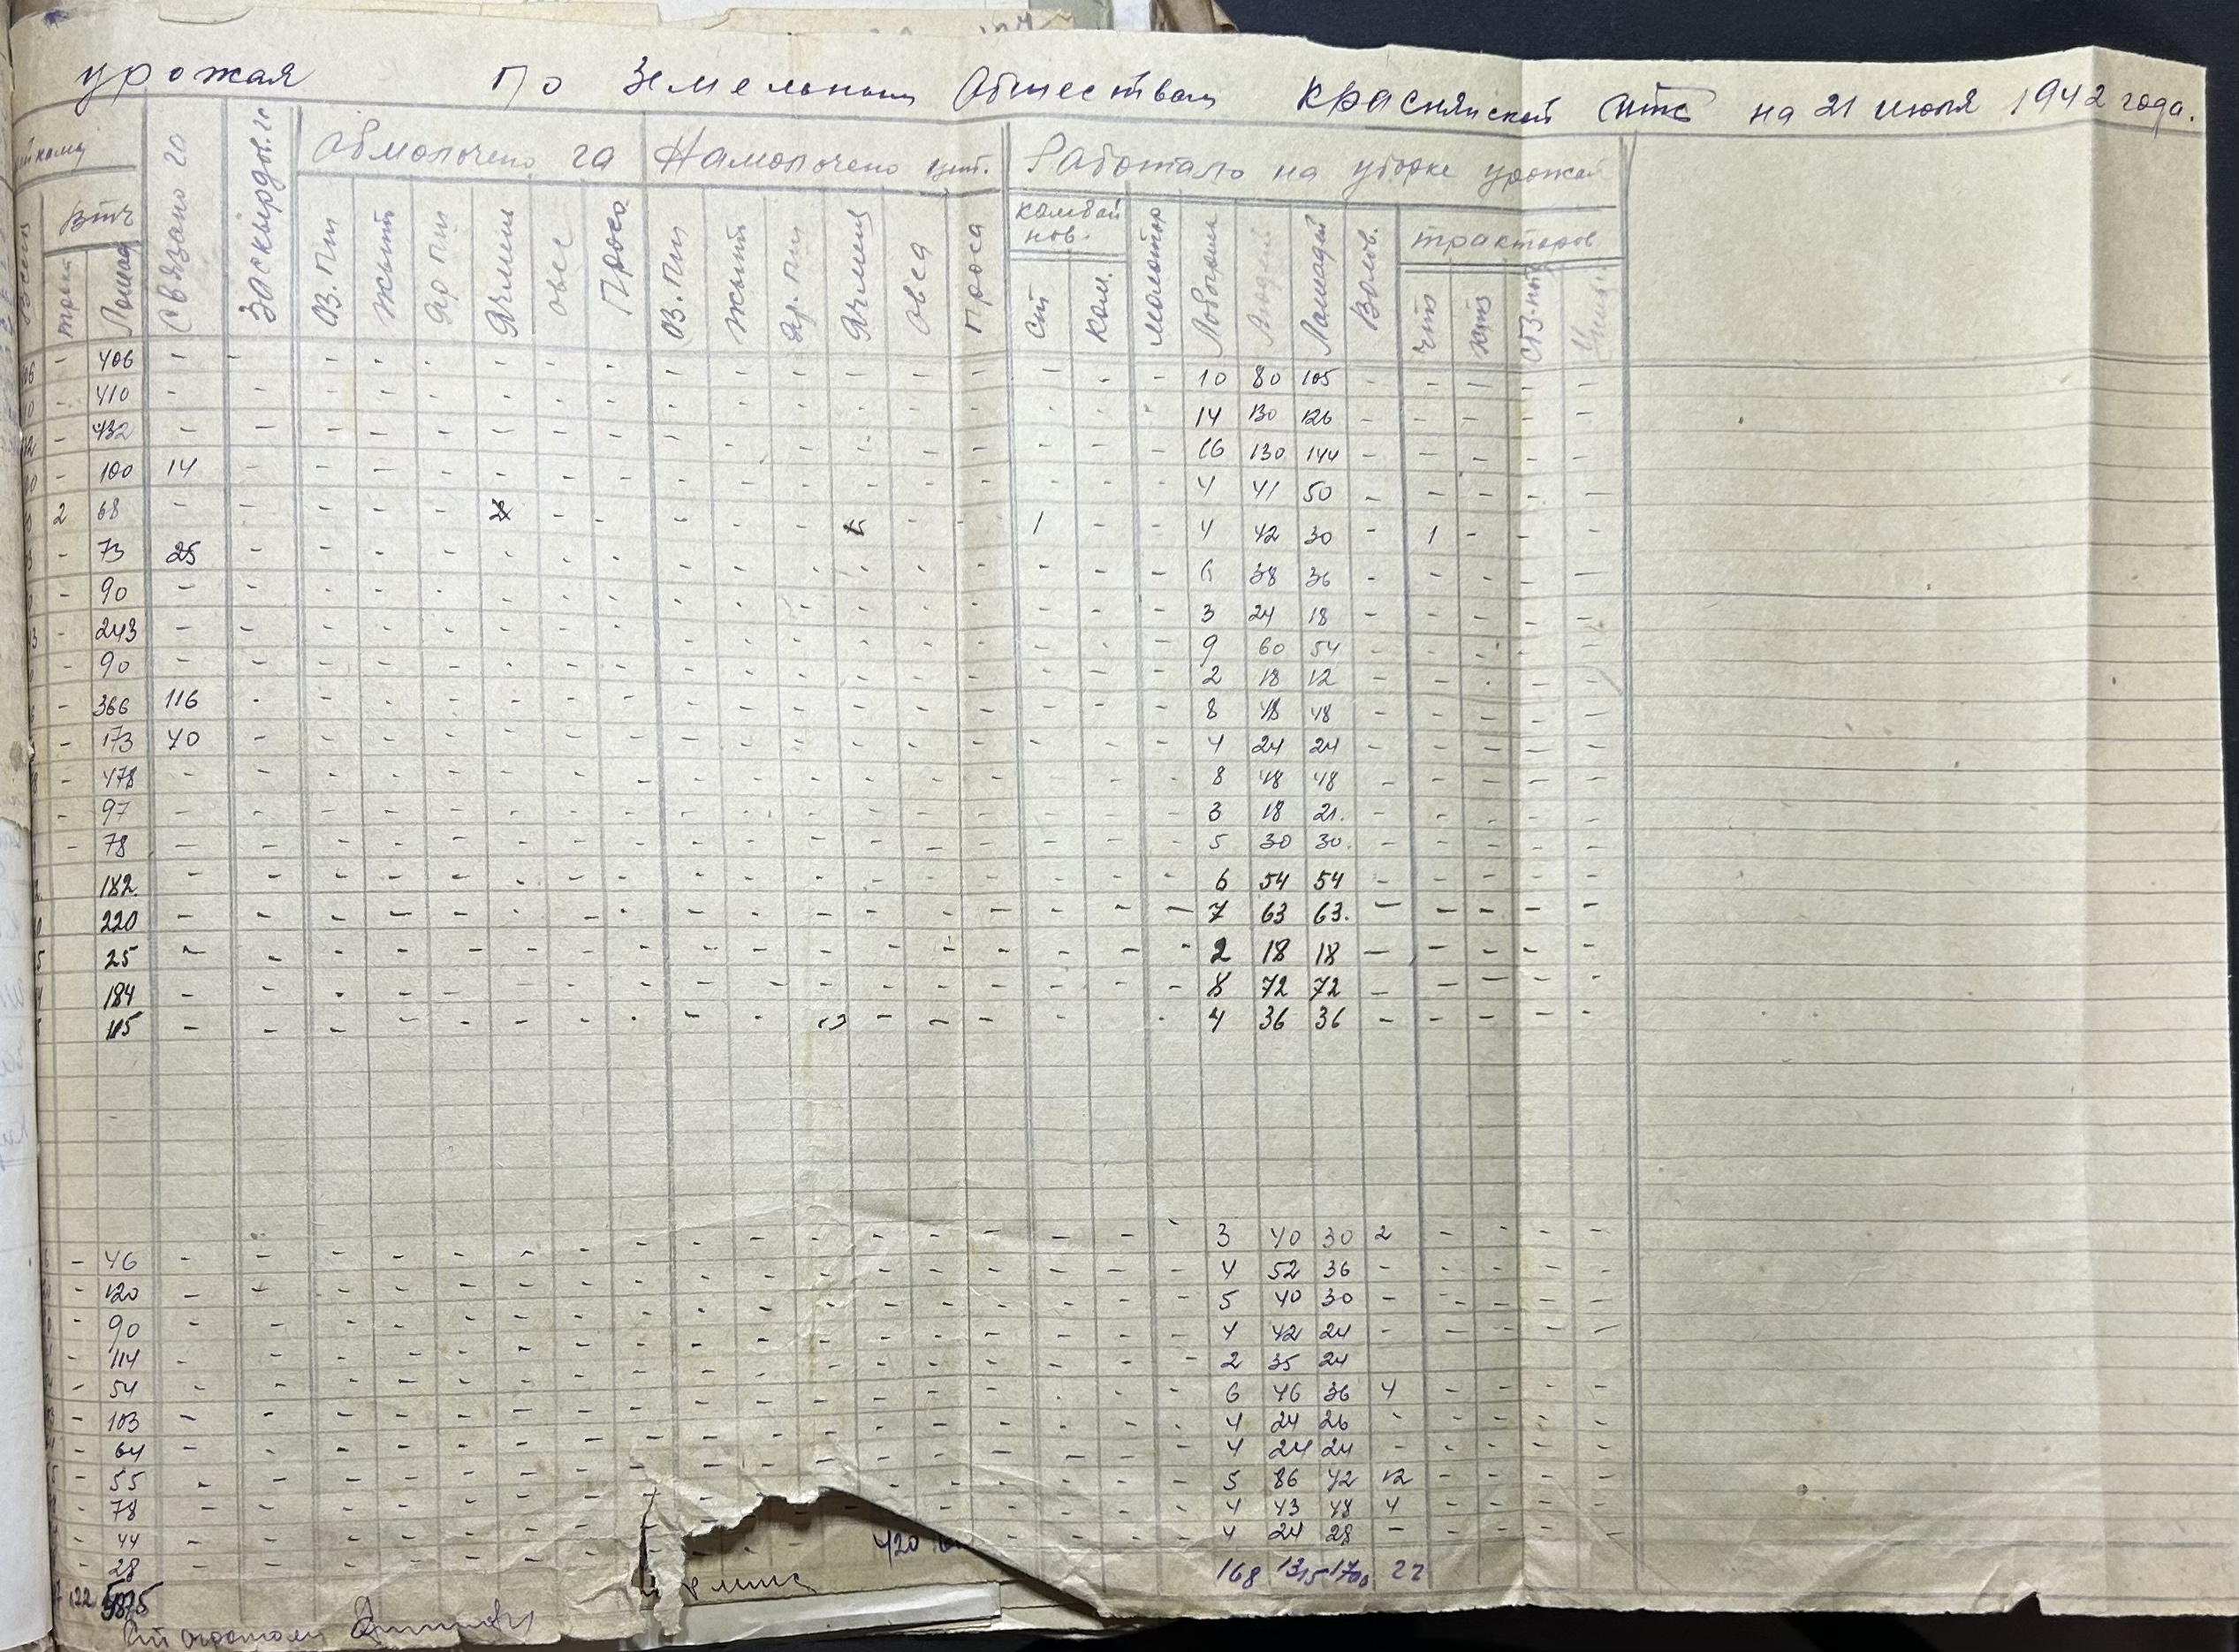 урожая по Земельным Обществам Краснянской мтс на 21 июля 1942 года.
Связано га Заскырдов. га Обмолочено га Намолочено цнт. Работало на уборке урожая
втч комбай нов. молотар Лобогрек Людей Лошадей Волов. тракторов
Лошад Оз. пш Жыт Яр пш Ячмень Овес Просо Оз. пш Жыт Яр. пш Ячмень Овса Проса ст ком. чтз хтз СТЗ-нати Униве
- 406 - - - - - - - - - - - - - - - - - 10 80 105 - - - - -
- 410 - - - - - - - - - - - - - - - - - 14 130 126 - - - - -
- 432 - - - - - - - - - - - - - - - - - 16 130 144 - - - - -
- 100 14 - - - - - - - - - - - - - - - - - 4 41 50 - - - - -
2 68 - - - - - - - - - - - - - 1 - - 4 42 30 - 1 - - -
- 73 25 - - - - - - - - - - - - - - - - 6 38 36 - - - - -
- 90 - - - - - - - - - - - - - - - - - 3 24 18 - - - - -
- 243 - - - - - - - - - - - - - - - - - 9 60 54 - - - - -
- 90 - - - - - - - - - - - - - - - - - 2 18 12 - - - - -
- 366 116 - - - - - - - - - - - - - - - - 8 48 48 - - - - -
- 173 40 - - - - - - - - - - - - - - - - 4 24 24 - - - - -
- 478 - - - - - - - - - - - - - - - - - 8 48 48 - - - - -
- 97 - - - - - - - - - - - - - - - - - 3 18 21. - - - - -
- 78 - - - - - - - - - - - - - - - - - 5 30 30. - - - - -
182. - - - - - - - - - - - - - - - - - 6 54 54 - - - - -
220 - - - - - - - - - - - - - - - - - 7 63 63. - - - - -
25 - - - - - - - - - - - - - - - - - 2 18 18 - - - - -
184 - - - - - - - - - - - - - - - - - 8 72 72 - - - - -
115 - - - - - - - - - - - - - - - - 4 36 36 - - - - -
- 46 - - - - - - - - - - - - - - - - - 3 40 30 2 - - - -
- 120 - - - - - - - - - - - - - - - - - 4 52 36 - - - - -
- 90 - - - - - - - - - - - - - - - - - 5 40 30 - - - - -
- 114 - - - - - - - - - - - - - - - - - 4 42 24 - - - - -
- 54 - - - - - - - - - - - - - - - - - 2 35 24
- 103 - - - - - - - - - - - - - - - - - 6 46 36 4 - - - -
- 64 - - - - - - - - - - - - - - - - - 4 24 26 - - - - -
- 55 - - - - - - - - - - - - - - - - - 4 24 24 - - - - -
- 78 - - - - - - - - - - - - - - - - - 5 86 42 12 - - - -
- 44 - - - - - - - - - - - - - - - - - 4 43 48 4 - - - -
- 28 - - - - - - - - - - - - 4 24 28 - - - - -
122 168 1315 22
420